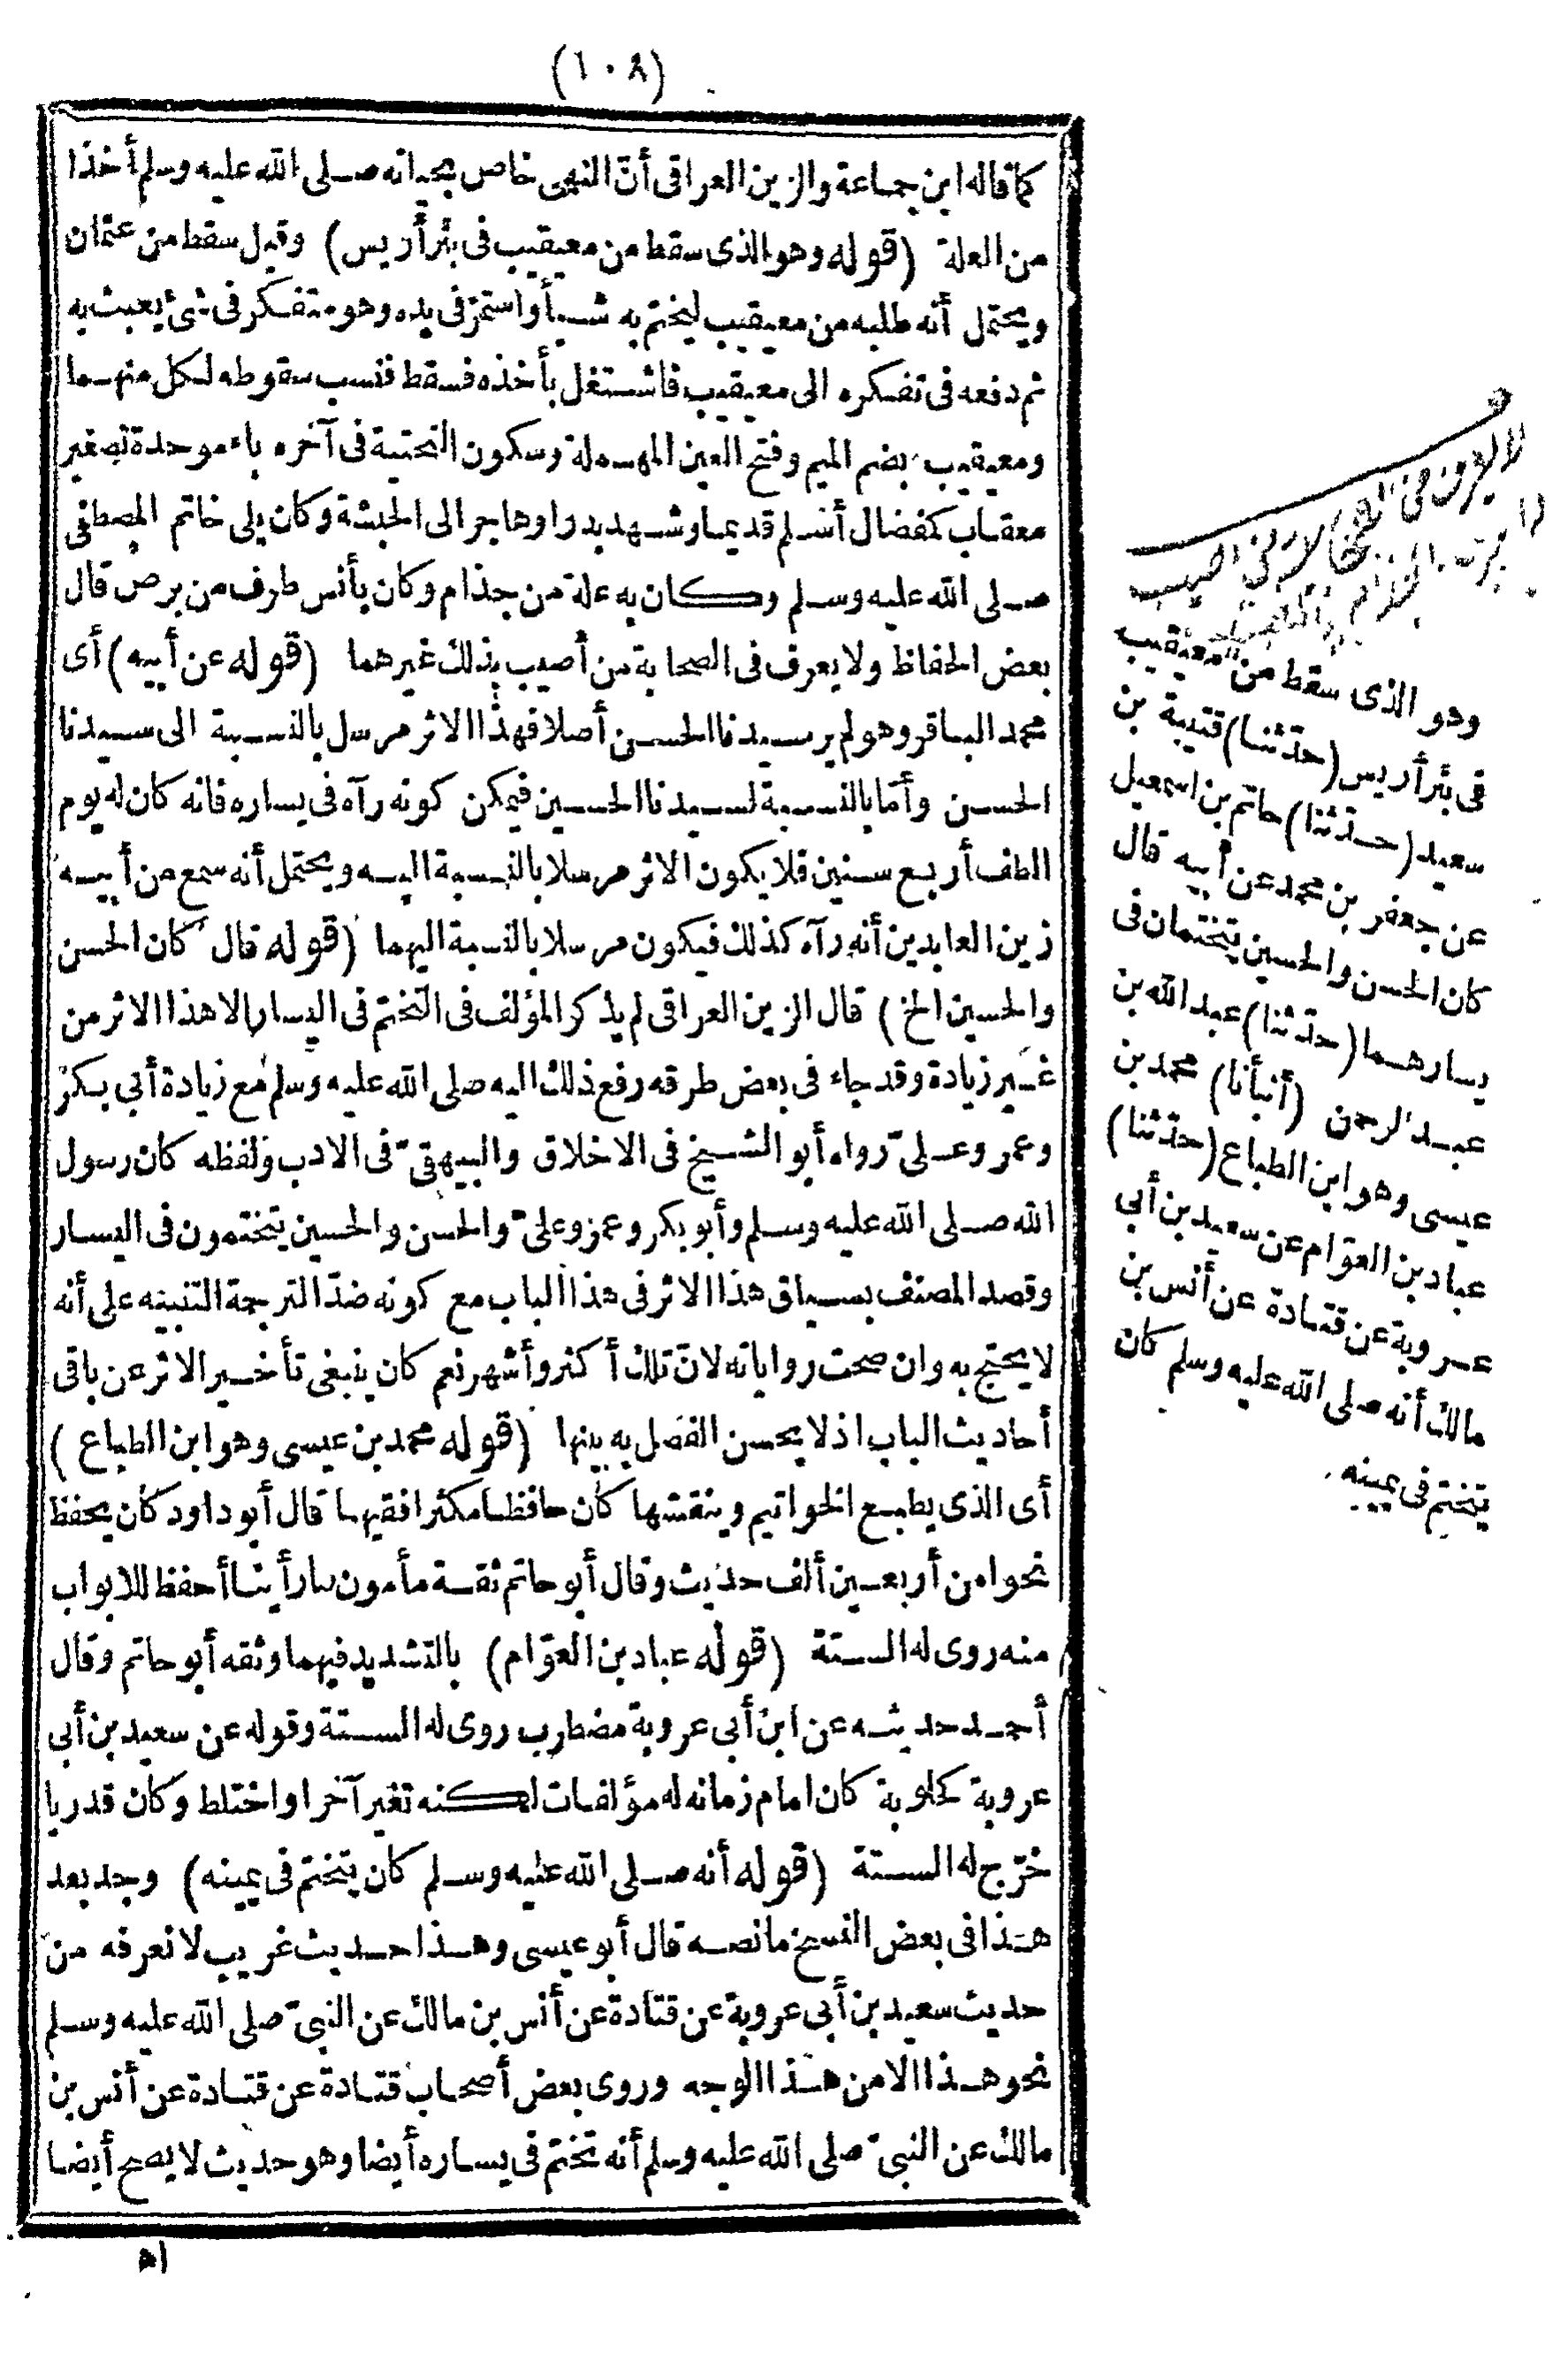 (١٠٨)
كما قاله ابن جماعة والزين العراقى أنّ النهى خاص بحياته صلى الله عليه وسلم أخذا
من العلة (قوله وهو الذى سقط من معيقيب فى بئر أريس) وقيل سقط من عثمان
ويحتمل أنه طلبه من معيقيب ليختم به شيأ واستمرّ فى يده وهو متفكر فى شئ يعبث به
ثم دفعه فى تفكره الى معيقيب فاشتغل بأخذه فسقط فنسب سقوطه لكل منهما
ومعيقيب بضم الميم وفتح العين المهملة وسكون التحتية فى آخره باء موحدة تصغير
معقاب كمفضال أسلم قديما وشهد بدرا وهاجر الى الحبشة وكان يلى خاتم المصطفى
صلى الله عليه وسلم وكان به علة من جذام وكان بأنس طرف من برص قال
بعض الحفاظ ولا يعرف فى الصحابة من أصيب بذلك غيرهما (قوله عن أبيه) أى
محمد الباقر وهو لم ير سيدنا الحسن أصلا فهذا الاثر مرسل بالنسبة الى سيدنا
الحسن وأمّا بالنسبة لسيدنا الحسين فيمكن كونه رآه فى يساره فانه كان له يوم
الطف أربع سنين فلا يكون الاثر مرسلا بالنسبة اليه ويحتمل أنه سمع من أبيه
زين العابدين أنه رآه كذلك فيكون مرسلا بالنسبة اليهما (قوله قال كان الحسن
والحسين الخ) قال الزين العراقى لم يذكر المؤلف فى التختم فى اليسار الا هذا الاثر من
غير زيادة وقد جاء فى بعض طرقه رفع ذلك اليه صلى الله عليه وسلم مع زيادة أبى بكر
وعمر وعلىّ رواه أبو الشيخ فى الاخلاق والبيهقىّ فى الادب ولفظه كان رسول
الله صلى الله عليه وسلم وأبو بكر وعمر وعلىّ والحسن والحسين يتختمون فى اليسار
وقصد المصنف بسياق هذا الاثر فى هذا الباب مع كونه ضدّ الترجمة التنبيه على أنه
لا يحتج به وان صحت رواياته لانّ تلك أكثر وأشهر نعم كان ينبغى تأخير الاثر عن باقى
أحاديث الباب اذ لا يحسن الفصل به بينها (قوله محمد بن عيسى وهو ابن الطباع)
أى الذى يطبع الخواتيم وينقشها كان حافظا مكثرا فقيها قال أبو داود كان يحفظ
نحوا من أربعين ألف حديث وقال أبو حاتم ثقة مأمون ما رأينا أحفظ للابواب
منه روى له الستة (قوله عباد بن العوّام) بالتشديد فيهما وثقه أبو حاتم وقال
أحمد حديثه عن ابن أبى عروبة مضطرب روى له الستة وقوله عن سعيد بن أبى
عروبة كحلوبة كان امام زمانه له مؤلفات لكنه تغير آخرا واختلط وكان قدريا
خرّج له الستة (قوله أنه صلى الله عليه وسلم كان يتختم فى يمينه) وجد بعد
هذا فى بعض النسخ ما نصه قال أبو عيسى وهذا حديث غريب لا نعرفه من
حديث سعيد بن أبى عروبة عن قتادة عن أنس بن مالك عن النبىّ صلى الله عليه وسلم
نحو هذا الا من هذا الوجه وروى بعض أصحاب قتادة عن قتادة عن أنس بن
مالك عن النبىّ صلى الله عليه وسلم أنه تختم فى يساره أيضا وهو حديث لا يصح أيضا
اه
وهو الذى سقط من معيقيب
فى بئر أريس (حدّثنا) قتيبة بن
سعيد (حدّثنا) حاتم بن اسمعيل
عن جعفر بن محمد عن أبيه قال
كان الحسن والحسين يتختمان فى
يسارهما (حدّثنا) عبد الله بن
عبد الرحمن (أنبأنا) محمد بن
عيسى وهو ابن الطباع (حدّثنا)
عباد بن العوّام عن سعيد بن أبى
عروبة عن قتادة عن أنس بن
مالك أنه صلى الله عليه وسلم كان
يتختم فى يمينه